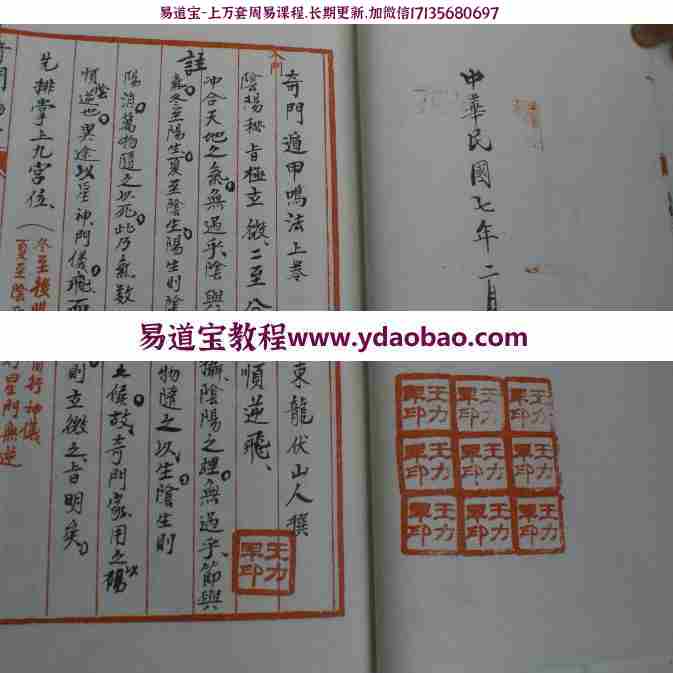 易道宝-上万套周易课程.长期更新.加微信17135680697
中華民國七年二月
入門
奇門遁甲鳴法上卷
東龍伏山人撰
陰陽秘旨極立微、二至分
順逆飛、
註
冲合天地之氣無過乎、陰與
陰陽之理無過乎、節與
蓋冬至陽生夏至陰生陽生則陰
物隨之以生陰生則
陽消萬物隨之以死此乃氣數
之候故奇門家用之以陽
順陰逆也異途以星神、門儀飛而
則立微之旨明矣
先排掌上九宮位、
冬至後
行神儀
夏至陰
星門無逆
易道宝教程www.ydaobao.com
王力軍印
王力軍印
王力軍印
王力軍印
王力軍印
王力軍印
王力軍印
王力軍印
王力軍印
王力軍印